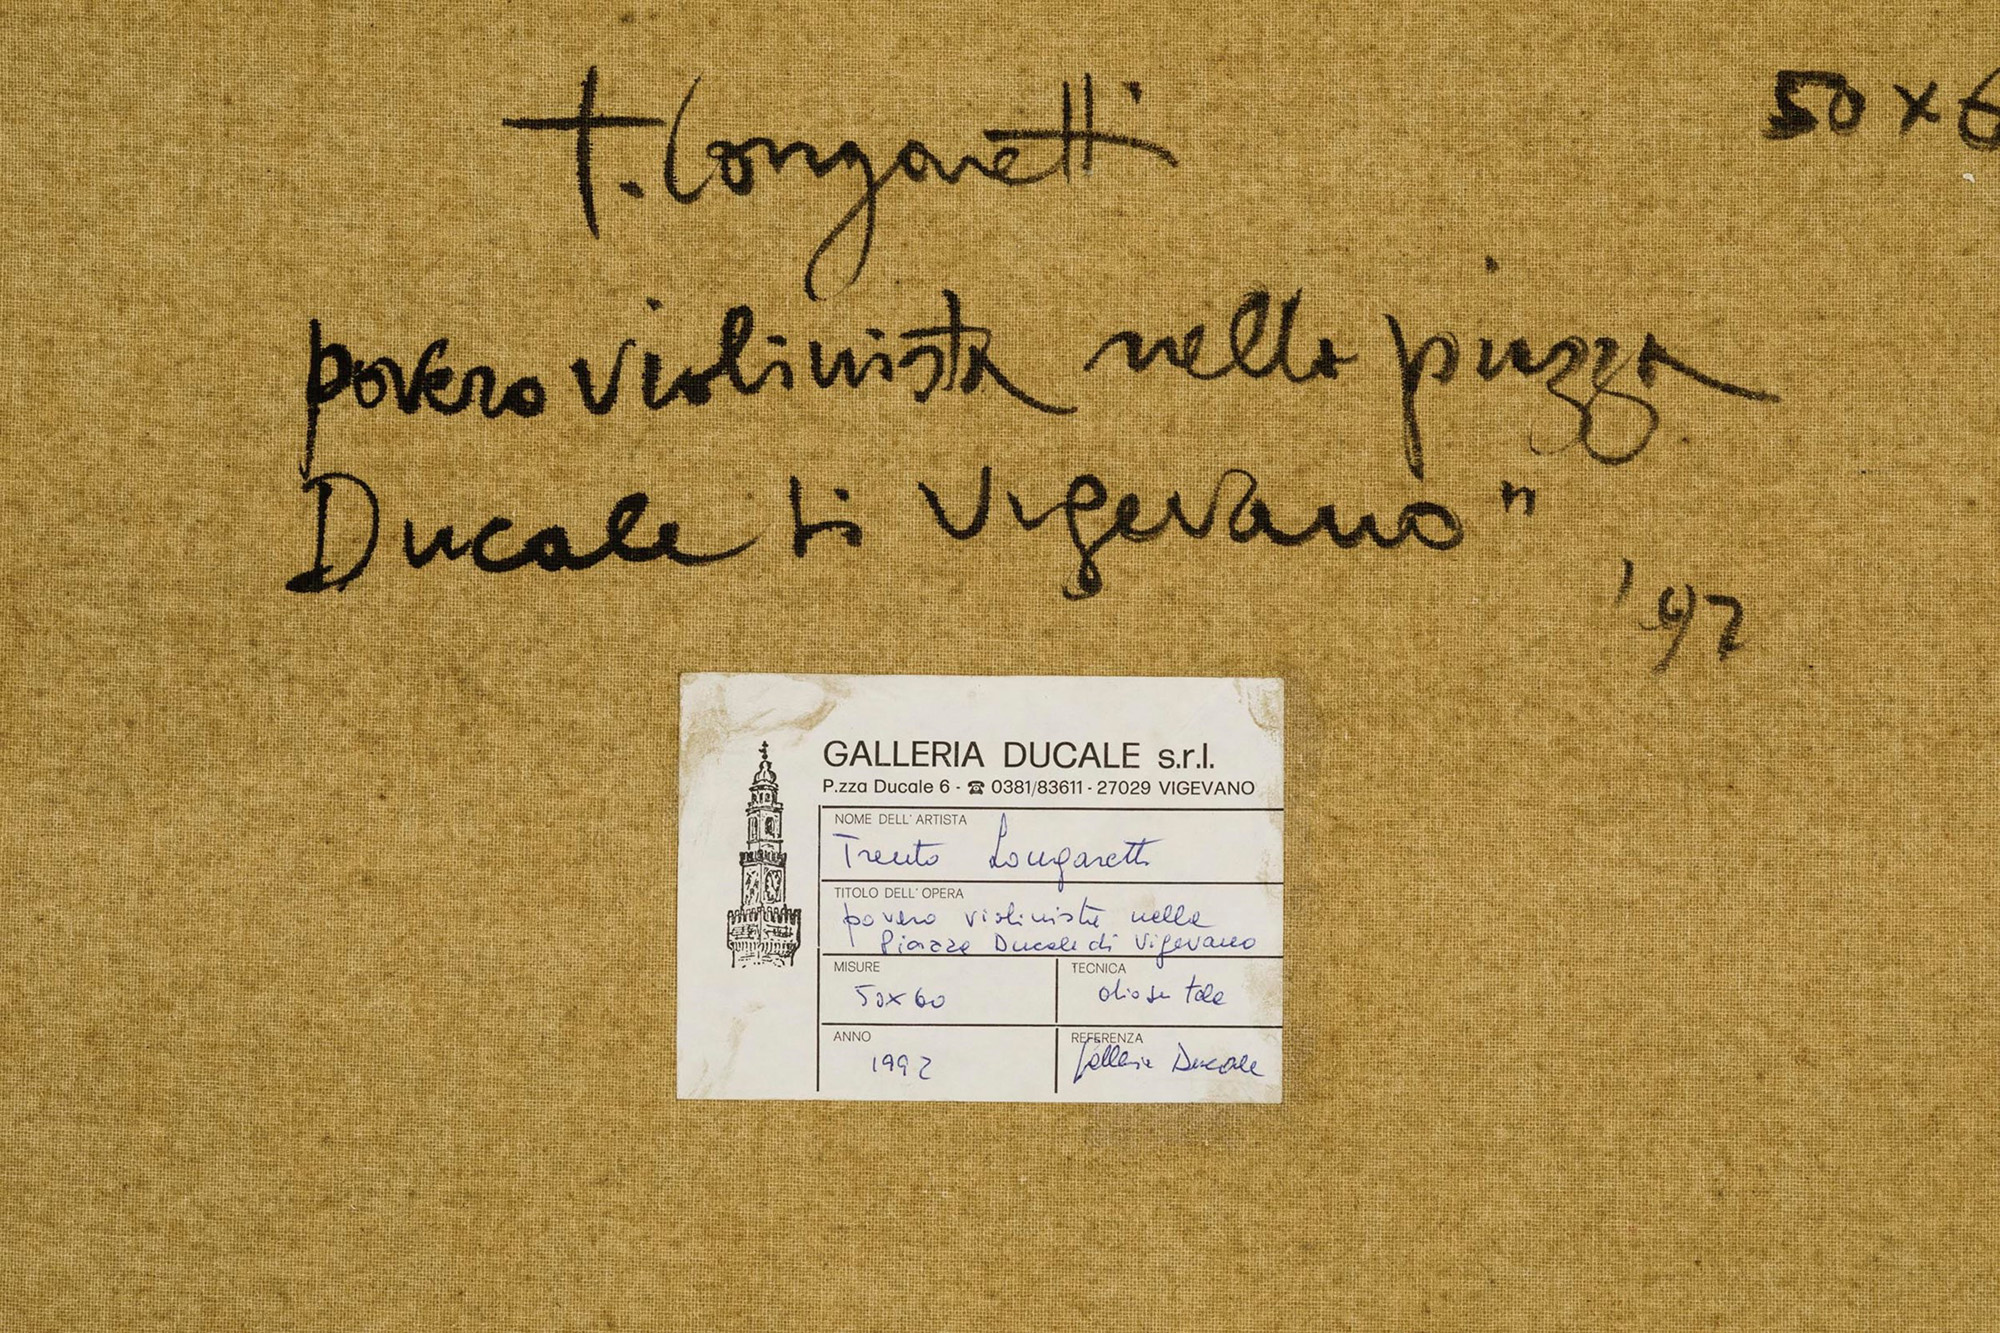 T. Longaretti
50 x 6
povero violinista nella piazza
Ducale di Vigevano"
'92
GALLERIA DUCALE s.r.l.
P.zza Ducale 6 - ☎ 0381/83611 - 27029 VIGEVANO
NOME DELL'ARTISTA
Trento Longaretti
TITOLO DELL'OPERA
povero violinista nella
Piazza Ducale di Vigevano
MISURE
50x60
TECNICA
olio su tela
ANNO
1992
REFERENZA
Galleria Ducale